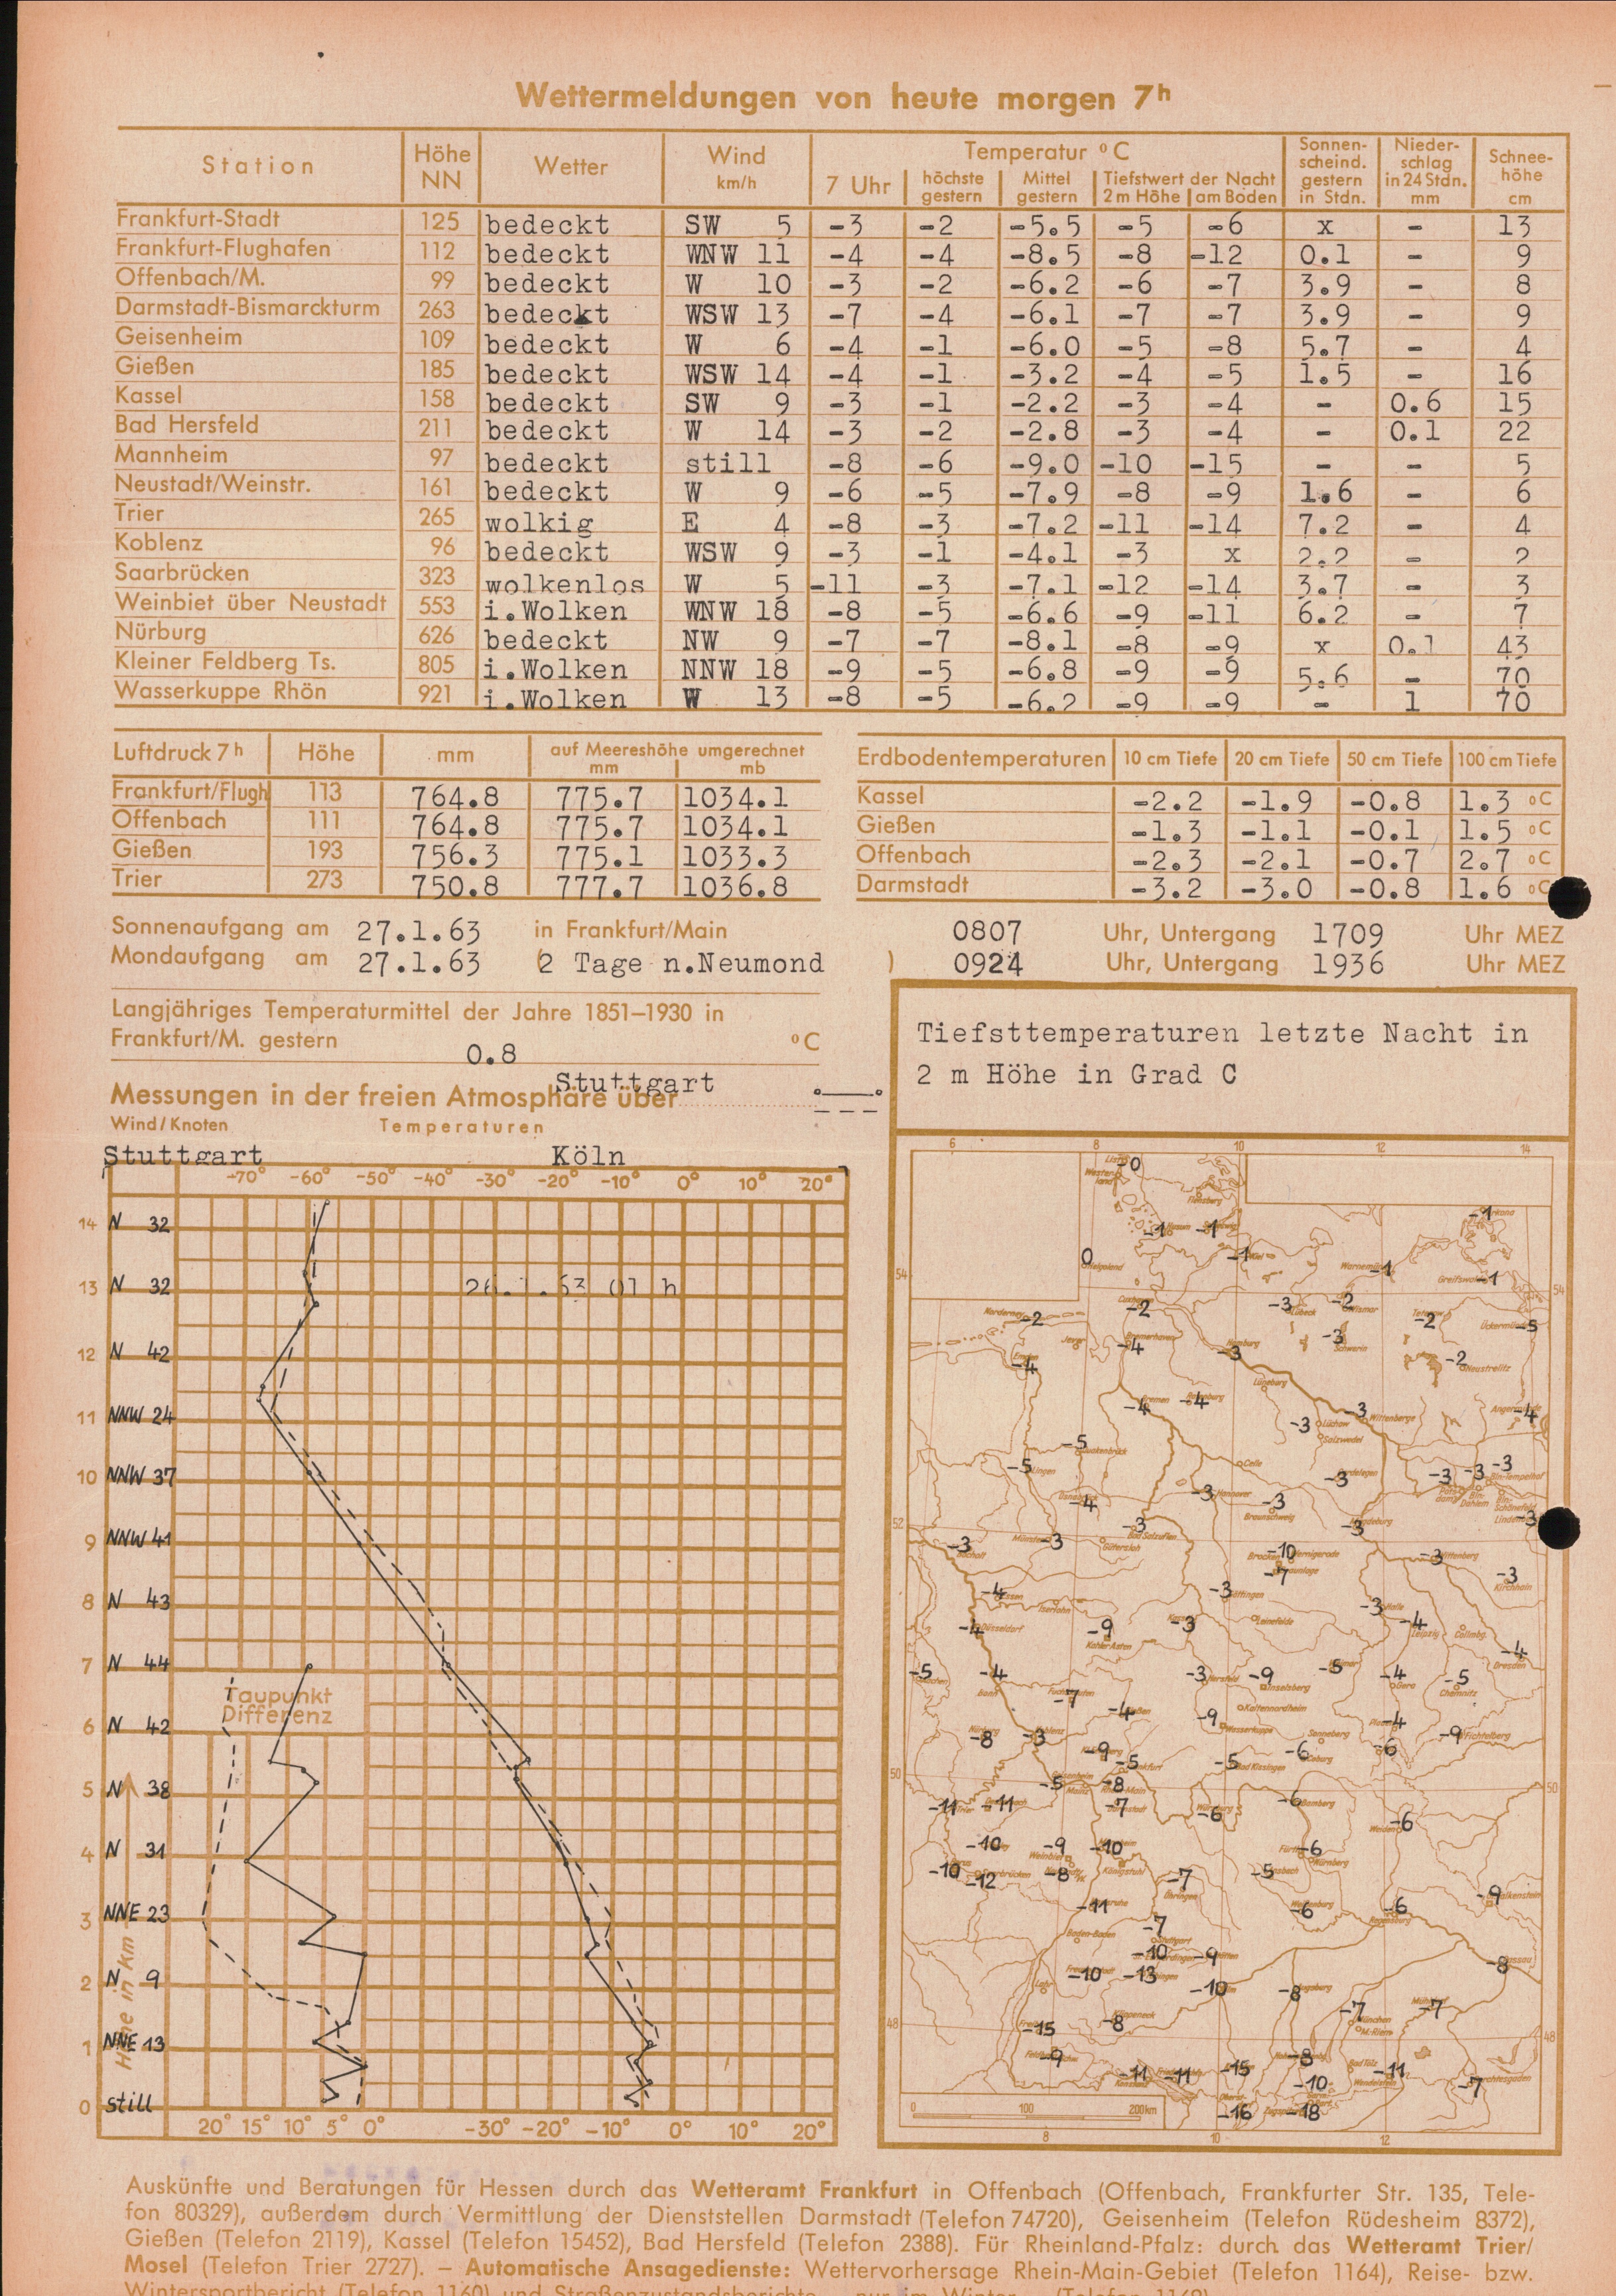 Wettermeldungen von heute morgen 7h
Station Höhe NN Wetter Wind km/h Temperatur °C Sonnenscheind. gestern in Stdn. Niederschlag in 24 Stdn. mm Schneehöhe cm
7 Uhr höchste gestern Mittel gestern Tiefstwert der Nacht 2 m Höhe am Boden
Frankfurt-Stadt 125 bedeckt SW 5 -3 -2 -5.5 -5 -6 x - 13
Frankfurt-Flughafen 112 bedeckt WNW 11 -4 -4 -8.5 -8 -12 0.1 - 9
Offenbach/M. 99 bedeckt W 10 -3 -2 -6.2 -6 -7 3.9 - 8
Darmstadt-Bismarckturm 263 bedeckt WSW 13 -7 -4 -6.1 -7 -7 3.9 - 9
Geisenheim 109 bedeckt W 6 -4 -1 -6.0 -5 -8 5.7 - 4
Gießen 185 bedeckt WSW 14 -4 -1 -3.2 -4 -5 1.5 - 16
Kassel 158 bedeckt SW 9 -3 -1 -2.2 -3 -4 - 0.6 15
Bad Hersfeld 211 bedeckt W 14 -3 -2 -2.8 -3 -4 - 0.1 22
Mannheim 97 bedeckt still -8 -6 -9.0 -10 -15 - - 5
Neustadt/Weinstr. 161 bedeckt W 9 -6 -5 -7.9 -8 -9 1.6 - 6
Trier 265 wolkig E 4 -8 -3 -7.2 -11 -14 7.2 - 4
Koblenz 96 bedeckt WSW 9 -3 -1 -4.1 -3 x 2.2 - 2
Saarbrücken 323 wolkenlos W 5 -11 -3 -7.1 -12 -14 3.7 - 3
Weinbiet über Neustadt 553 i.Wolken WNW 18 -8 -5 -6.6 -9 -11 6.2 - 7
Nürburg 626 bedeckt NW 9 -7 -7 -8.1 -8 -9 x 0.1 43
Kleiner Feldberg Ts. 805 i.Wolken NNW 18 -9 -5 -6.8 -9 -9 5.6 - 70
Wasserkuppe Rhön 921 i.Wolken W 13 -8 -5 -6.2 -9 -9 - 1 70
Luftdruck 7h Höhe mm auf Meereshöhe umgerechnet
mm mb
Frankfurt/Flugh 113 764.8 775.7 1034.1
Offenbach 111 764.8 775.7 1034.1
Gießen 193 756.3 775.1 1033.3
Trier 273 750.8 777.7 1036.8
Erdbodentemperaturen 10 cm Tiefe 20 cm Tiefe 50 cm Tiefe 100 cm Tiefe
Kassel -2.2 -1.9 -0.8 1.3 °C
Gießen -1.3 -1.1 -0.1 1.5 °C
Offenbach -2.3 -2.1 -0.7 2.7 °C
Darmstadt -3.2 -3.0 -0.8 1.6 °C
Sonnenaufgang am 27.1.63 in Frankfurt/Main 0807 Uhr, Untergang 1709 Uhr MEZ
Mondaufgang am 27.1.63 (2 Tage n.Neumond ) 0924 Uhr, Untergang 1936 Uhr MEZ
Langjähriges Temperaturmittel der Jahre 1851–1930 in
Frankfurt/M. gestern 0.8 °C
Stuttgart
Messungen in der freien Atmosphäre über
Wind/Knoten Temperaturen
Stuttgart Köln
-70° -60° -50° -40° -30° -20° -10° 0° 10° 20°
14 N 32
13 N 32 26.1.63 01 h
12 N 42
11 NNW 24
10 NNW 37
9 NNW 41
8 N 43
7 N 44
Taupunkt
Differenz
6 N 42
5 N 38
4 N 31
3 NNE 23
2 N 9
1 NNE 13
0 still
Höhe in km
20° 15° 10° 5° 0° -30° -20° -10° 0° 10° 20°
Tiefsttemperaturen letzte Nacht in
2 m Höhe in Grad C
6 8 10 12 14
0
-1 -1 -1
0 -1 -1 -1
54 54
-2 -2 -3 -2 -2 -5
-4 -4 -3 -3 -2
-4 -4 -3 -3 -4
-5 -5 -3 -3 -3 -3
-4 -3 -3
52 -3 -3 -3 -3 -3
-10 -7 -3 -3
-4 -3 -3 -4
-4 -9 -3 -4
-5 -4 -3 -9 -5 -4 -5
-7 -4 -9 -4
-8 -3 -9 -5 -5 -6 -6 -9
50 -5 -8 50
-11 -11 -7 -6 -6 -6
-10 -9 -10 -6
-10 -12 -8 -7 -5
-11 -6 -6 -9
-7
-10 -9
-10 -13 -10 -8 -8
48 -15 -8 -7 -7 48
-9 -11 -11 -15 -8 -11
-10 -7
-16 -18
0 100 200km
8 10 12
Auskünfte und Beratungen für Hessen durch das Wetteramt Frankfurt in Offenbach (Offenbach, Frankfurter Str. 135, Tele-
fon 80329), außerdem durch Vermittlung der Dienststellen Darmstadt (Telefon 74720), Geisenheim (Telefon Rüdesheim 8372),
Gießen (Telefon 2119), Kassel (Telefon 15452), Bad Hersfeld (Telefon 2388). Für Rheinland-Pfalz: durch das Wetteramt Trier/
Mosel (Telefon Trier 2727). – Automatische Ansagedienste: Wettervorhersage Rhein-Main-Gebiet (Telefon 1164), Reise- bzw.
Wintersportbericht (Telefon 1160) und Straßenzustandsberichte – nur im Winter – (Telefon 1169)